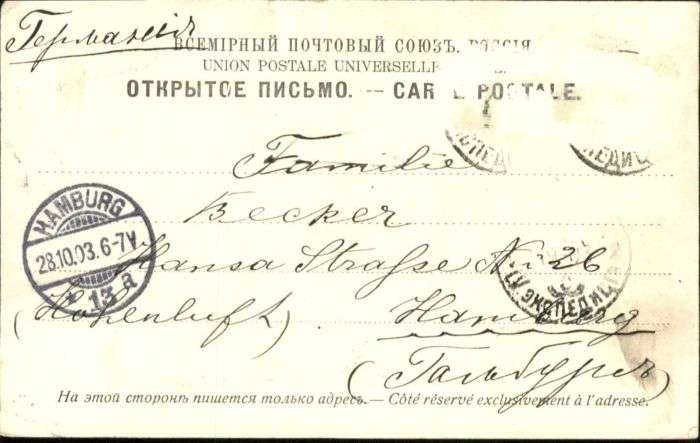 Германія
ВСЕМІРНЫЙ ПОЧТОВЫЙ СОЮЗЪ. РОССІЯ
UNION POSTALE UNIVERSELLE
ОТКРЫТОЕ ПИСЬМО. — CAR E POSTALE.
Familie
Becker
HAMBURG
28.10.03.6-7V
13.a
Hansa Strasse No 26
(Hohenluft) Hamburg
(Гамбургъ)
ЭКСПЕДИЦ
На этой сторонѣ пишется только адресъ.— Côté réservé exclusivement à l'adresse.